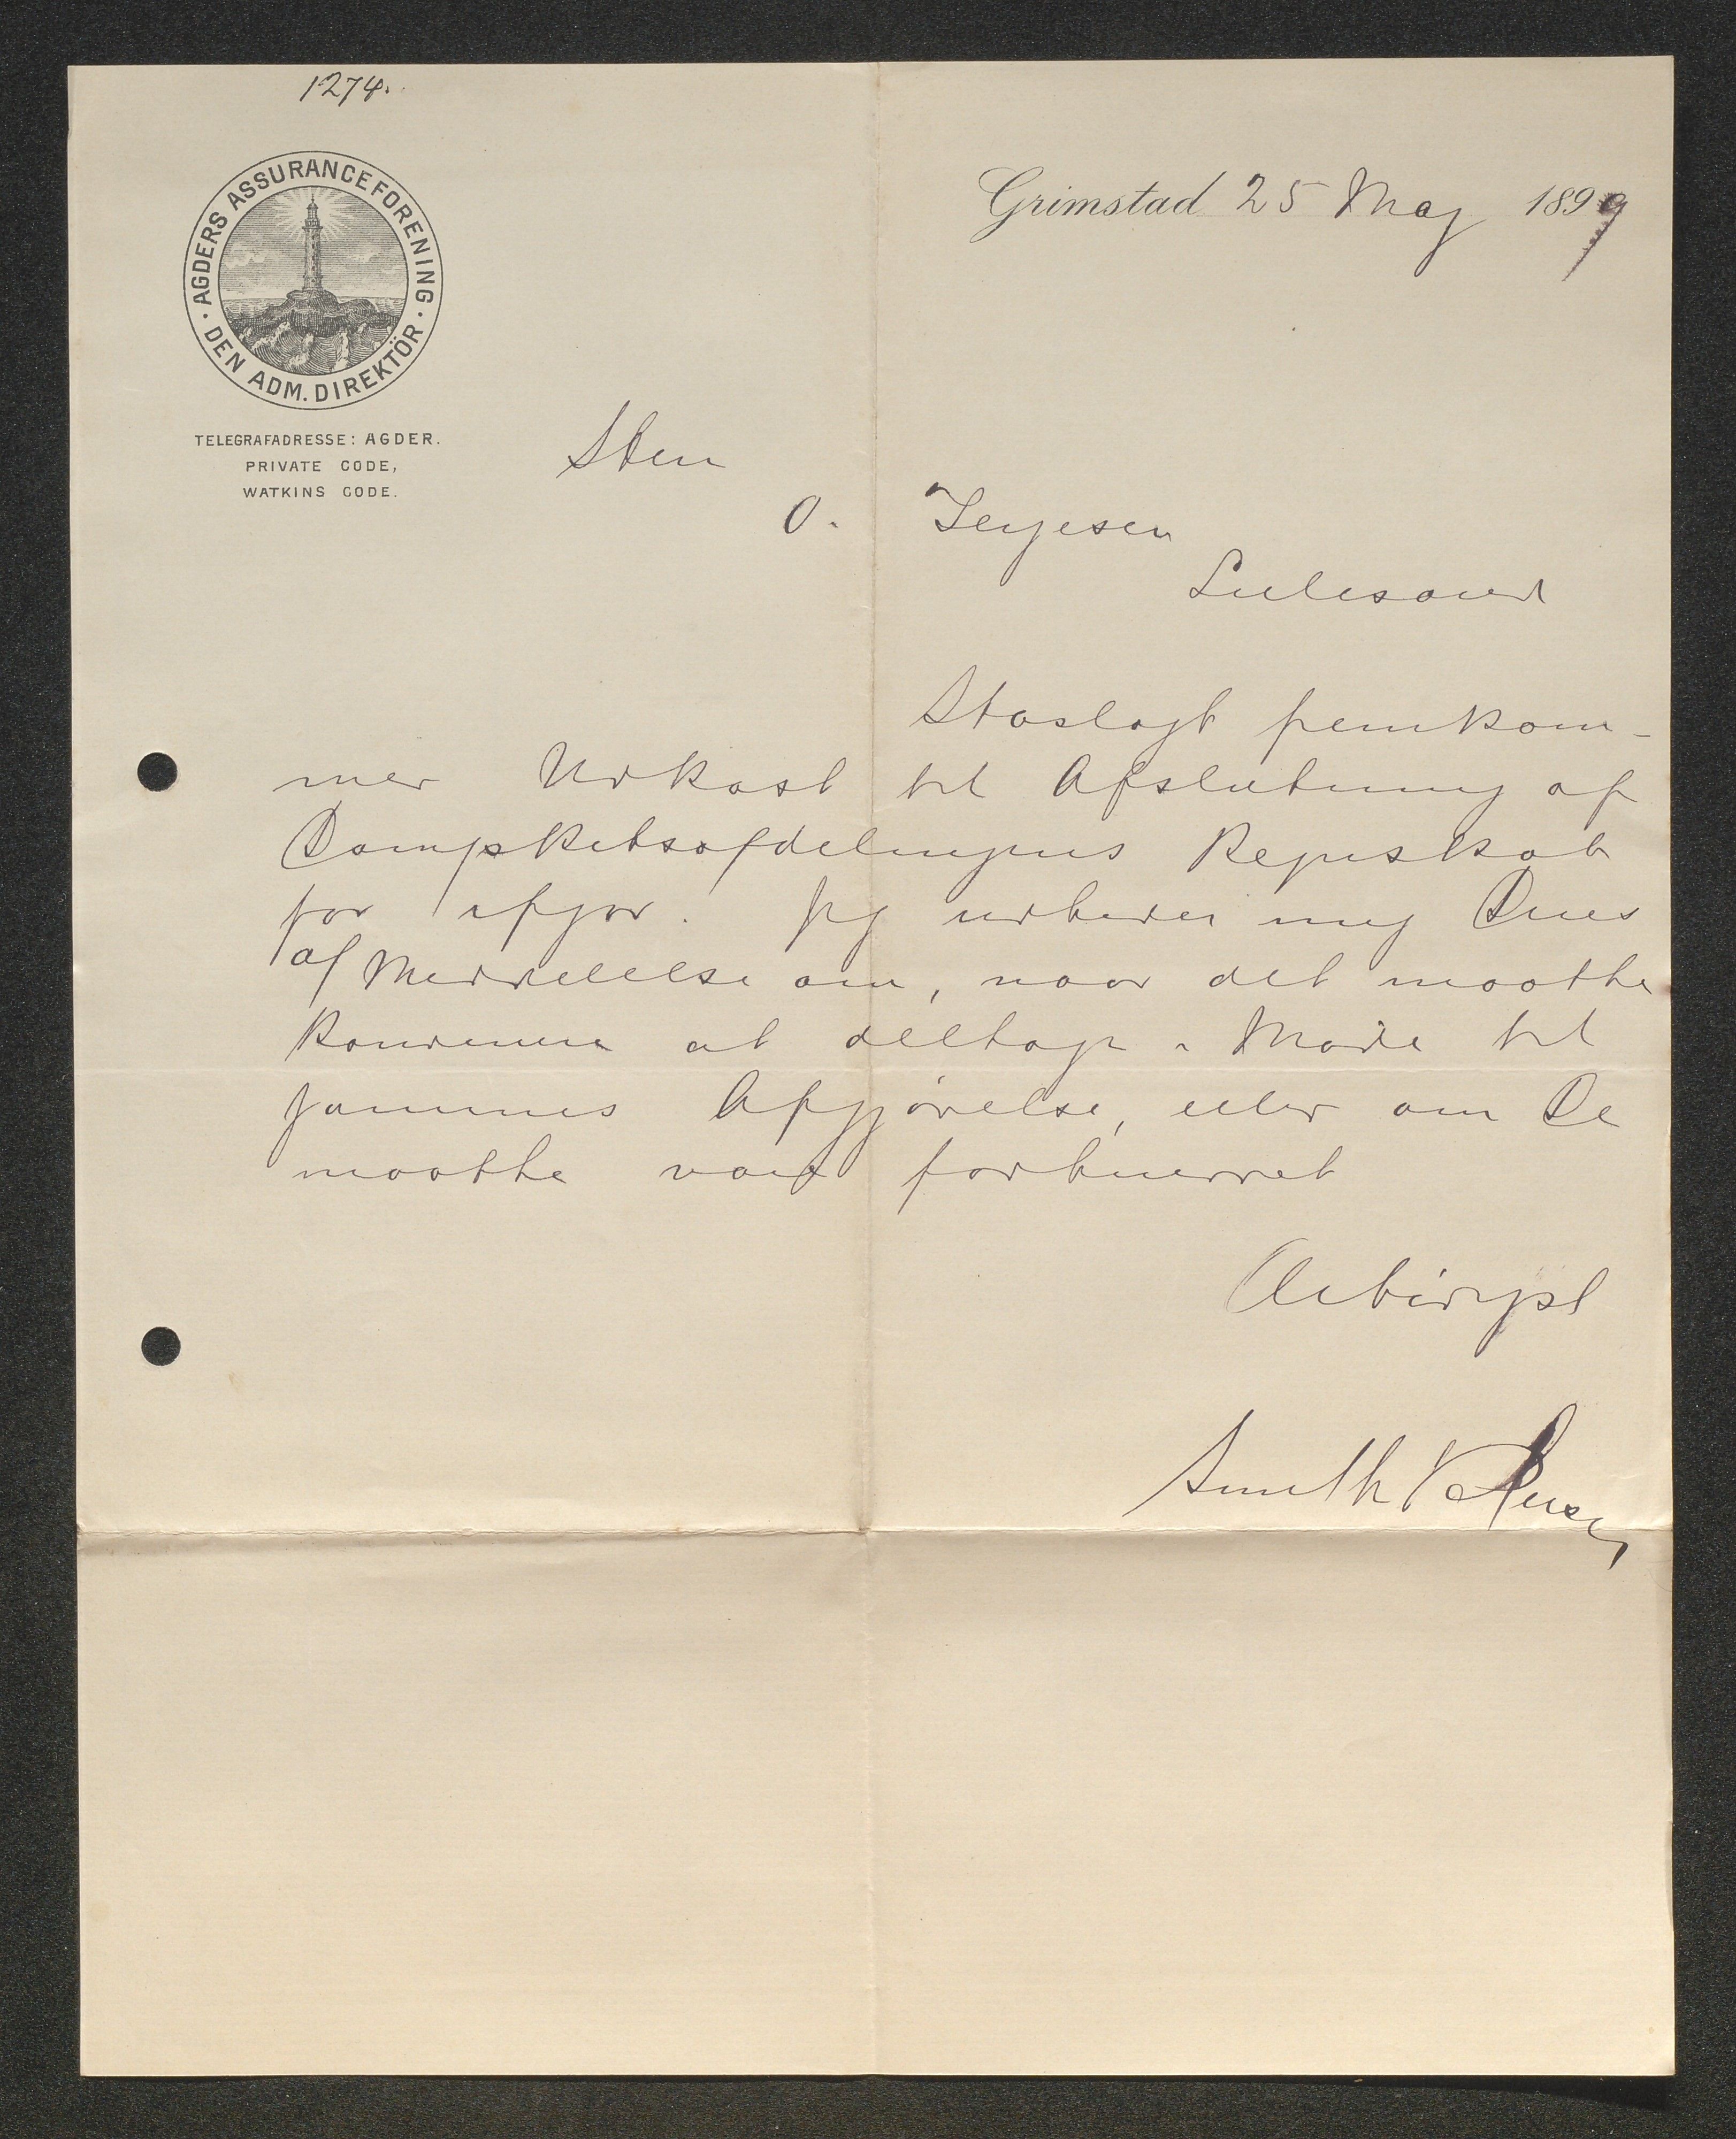 1274.
AGDERS ASSURANCEFORENING
DEN ADM. DIREKTÖR
TELEGRAFADRESSE: AGDER.
PRIVATE CODE,
WATKINS CODE.
Grimstad 25 Maj 1899
Hr
O. Terjesen
Lillesand
Hoslagt fremkom-
mer Udkast til Afslutning af
Dampskibsafdelingens Regnskab
for ifjor. Jeg udbeder mig Deres
af Meddelelse om, naar det maatte
konvenere at deltage i Møde til
sammes Afgjørelse, eller om De
maatte være forhindret
Ærbødigst
Smith Petersen